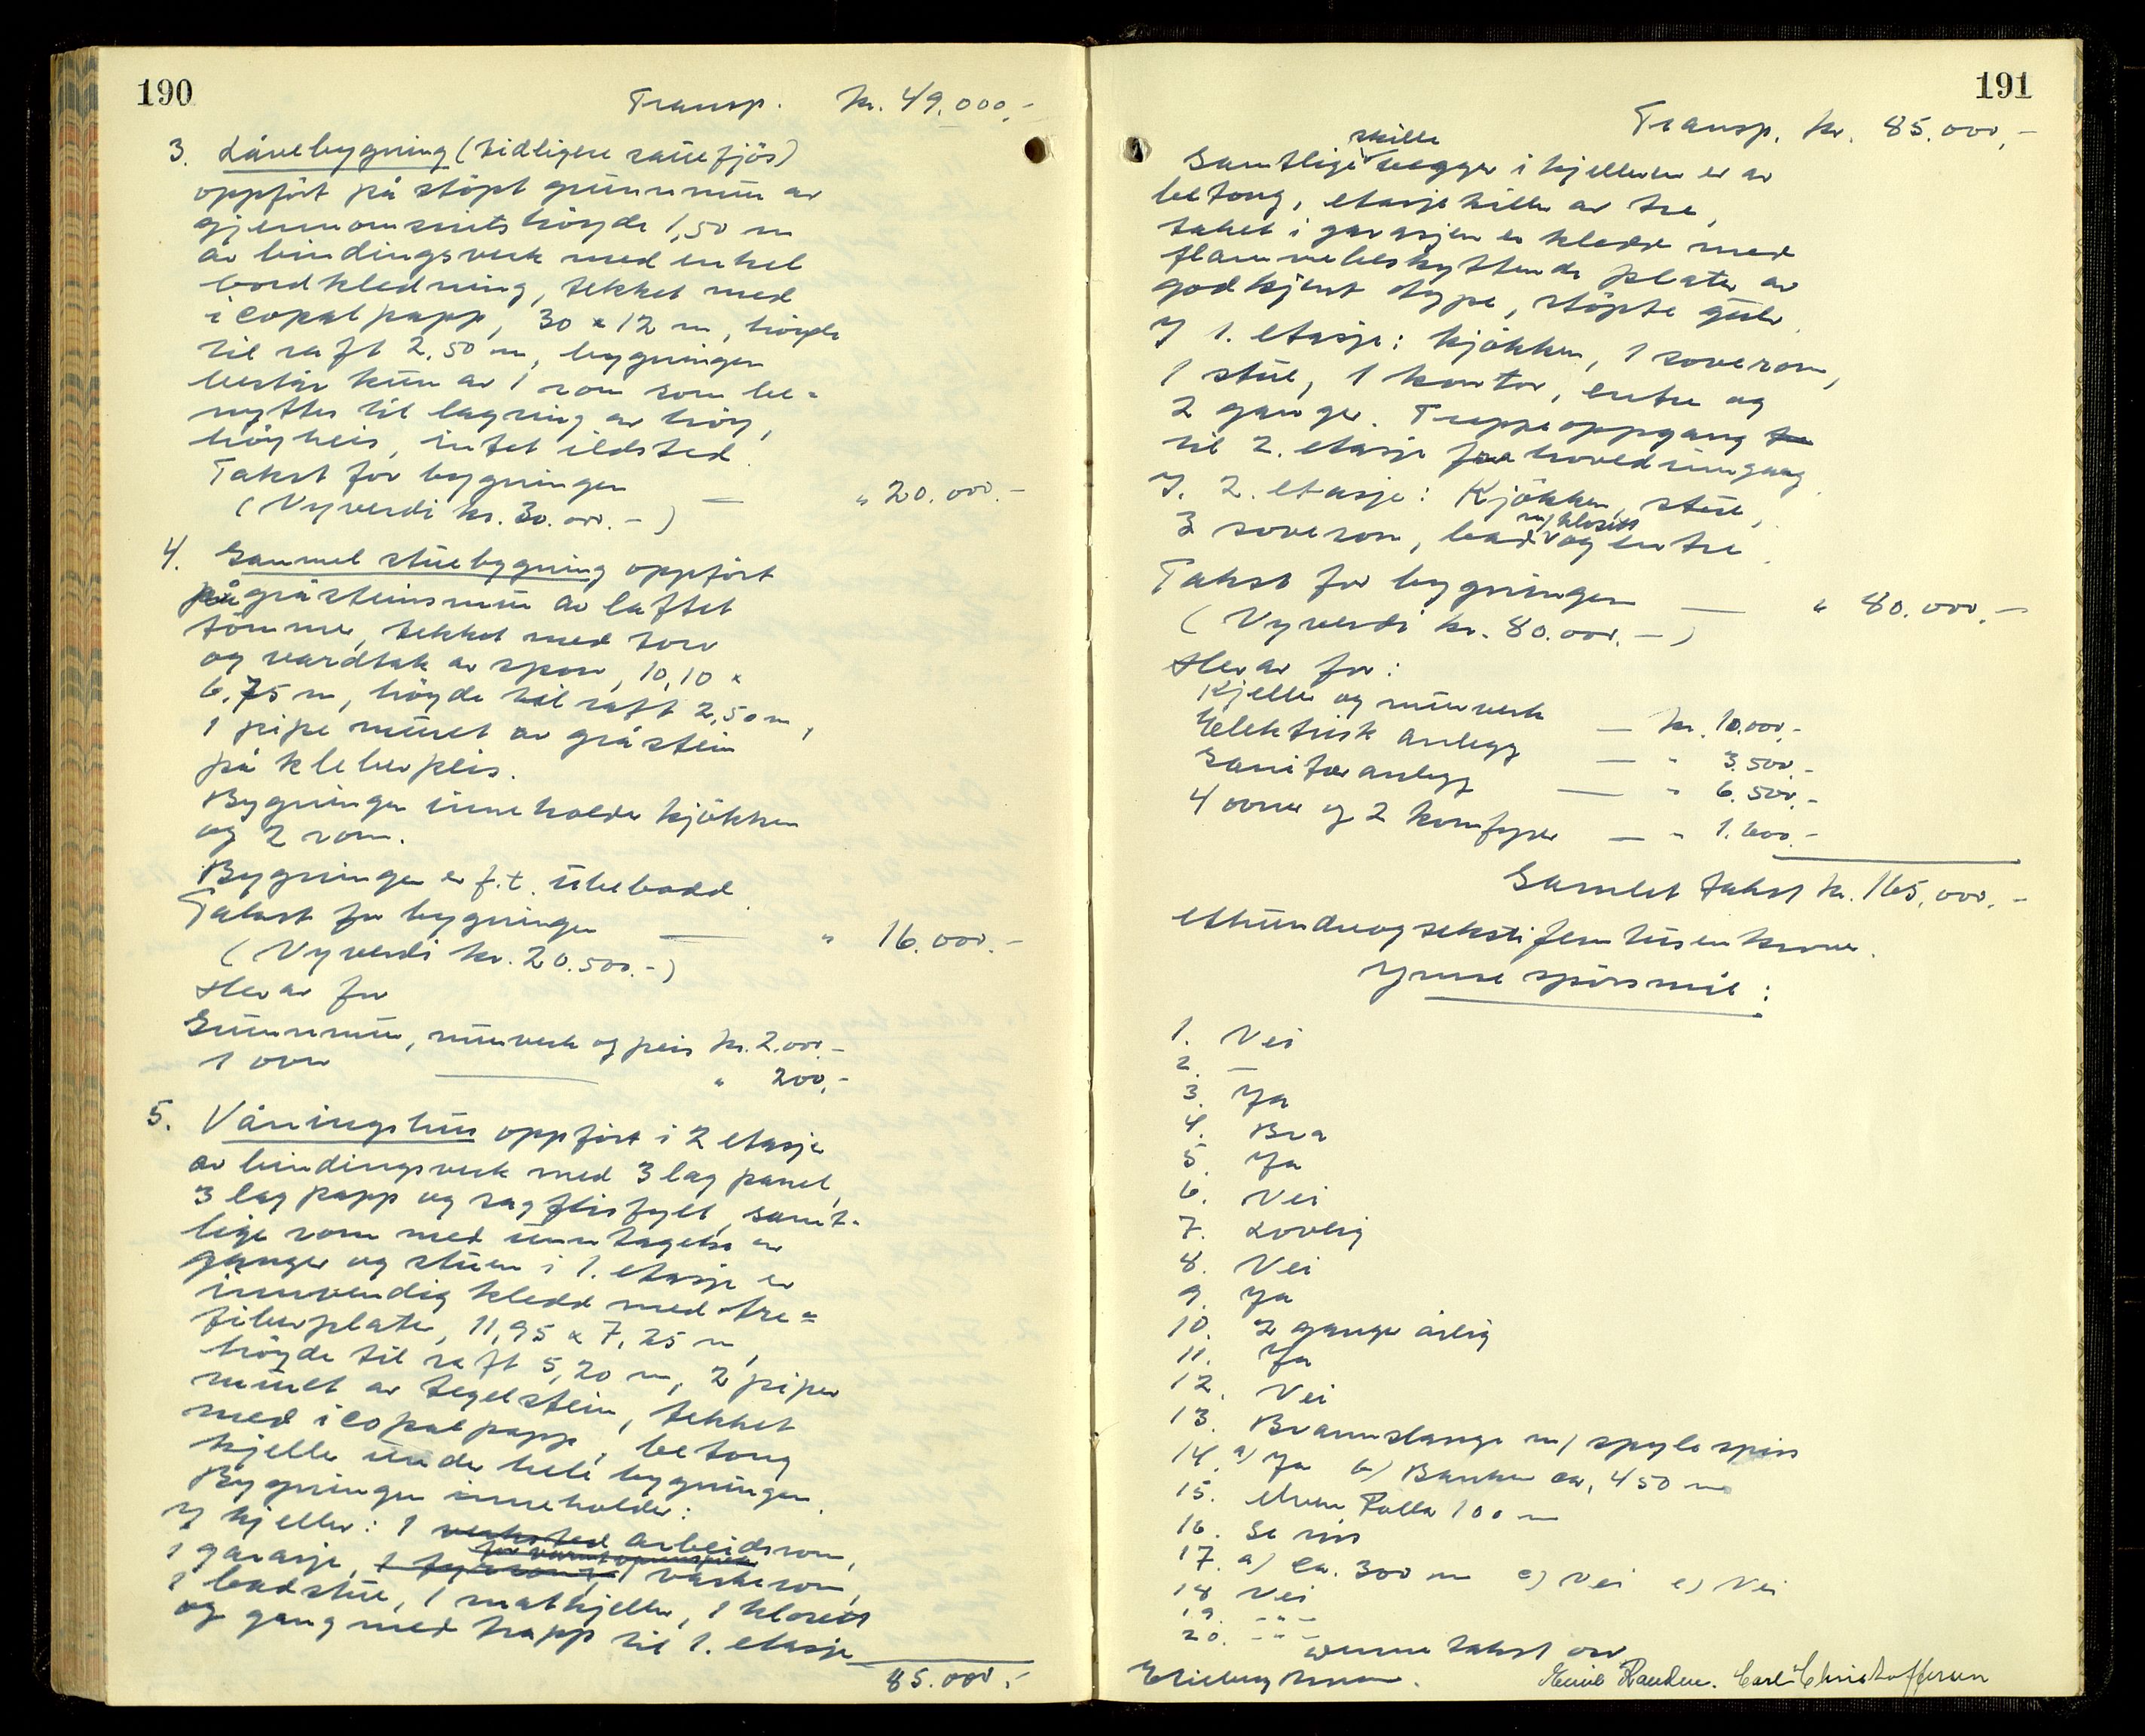 190
Transp. kr. 49.000,-
3. Låvebygning (tidligere sauefjös)
oppfört på stöpt grunnmur av
gjennomsnitshöyde 1,50 m
av bindingsverk med enkel
bordkledning, tekket med
icopalpapp, 30 x 12 m, höyde
til raft 2,50 m, bygningen
består kun av 1 rom som be=
nyttes til lagring av höy,
höyheis, intet ildsted.
Takst for bygningen — " 20.000.-
(Nyverdi kr. 30.000.-)
4. Gammel stuebygning oppfört
på gråsteinsmur av laftet
tömmer, tekket med torv
og vardtak av spon, 10,10 x
6,75 m, höyde til raft 2,50 m,
1 pipe muret av gråstein
på kleberpeis.
Bygningen inneholder kjökken
og 2 rom.
Bygningen er f.t. ubebodd.
Takst for bygningen — " 16.000.-
(Nyverdi kr. 20.500.-)
Herav for
Grunnmur, murverk og peis kr. 2.000.-
1 ovn — " 200,-
5. Våningshus oppfört i 2 etasjer
av bindingsverk med 3 lag panel,
3 lag papp og sagflisfyll, samt-
lige rom med unntagelse av
ganger og stuen i 1. etasje er
innvendig kledd med tre=
fiberplater, 11,95 x 7,25 m,
höyde til raft 5,20 m, 2 piper
muret av tegelstein, tekket
med icopalpapp, betong
kjeller under hele bygningen.
Bygningen inneholder:
I kjeller: 1 verksted arbeidsrom,
1 garasje, 1 vaskerom,
1 badstue, 1 matkjeller, 1 klosett
og gang med trapp til 1. etasje
85.000,-
191
Transp. kr. 85.000,-
skille
Samtlige vegger i kjelleren er av
betong, etasjeskiller av tre,
taket i garasjen er kledd med
flammebeskyttende plater av
godkjent type, stöpte gulv.
I 1. etasje: kjökken, 1 soverom,
1 stue, 1 kontor, entre og
2 ganger. Trappeoppgang
til 2. etasje fra hovedinngang.
I. 2. etasje: Kjökken, stue,
m/klosett
3 soverom, bad og entre.
Takst for bygningen — " 80.000,-
(Nyverdi kr. 80.000.-)
Herav for:
Kjeller og murverk — kr. 10.000,-
Elektrisk anlegg — " 3.500,-
Sanitæranlegg — " 6.500,-
4 ovner og 2 komfyrer — " 1.600.-
Samlet takst kr. 165.000.-
Etthundreogsekstifemtusenkroner.
Ymse spörsmål:
1. Nei
2. —
3. Ja
4. Bra
5. Ja
6. Nei
7. Lovlig
8. Nei
9. Ja
10. 2 ganger årlig
11. Ja
12. Nei
13. Brannslange m/ spylespiss
14. a) Ja b) Bekken ca. 450 m
15. Elven Rolla 100 m
16. Se riss
17. a) Ca. 300 m c) Nei e) Nei
18 Nei
19. -"-
20. -"-
Denne takst osv.
Carl Christoffersen